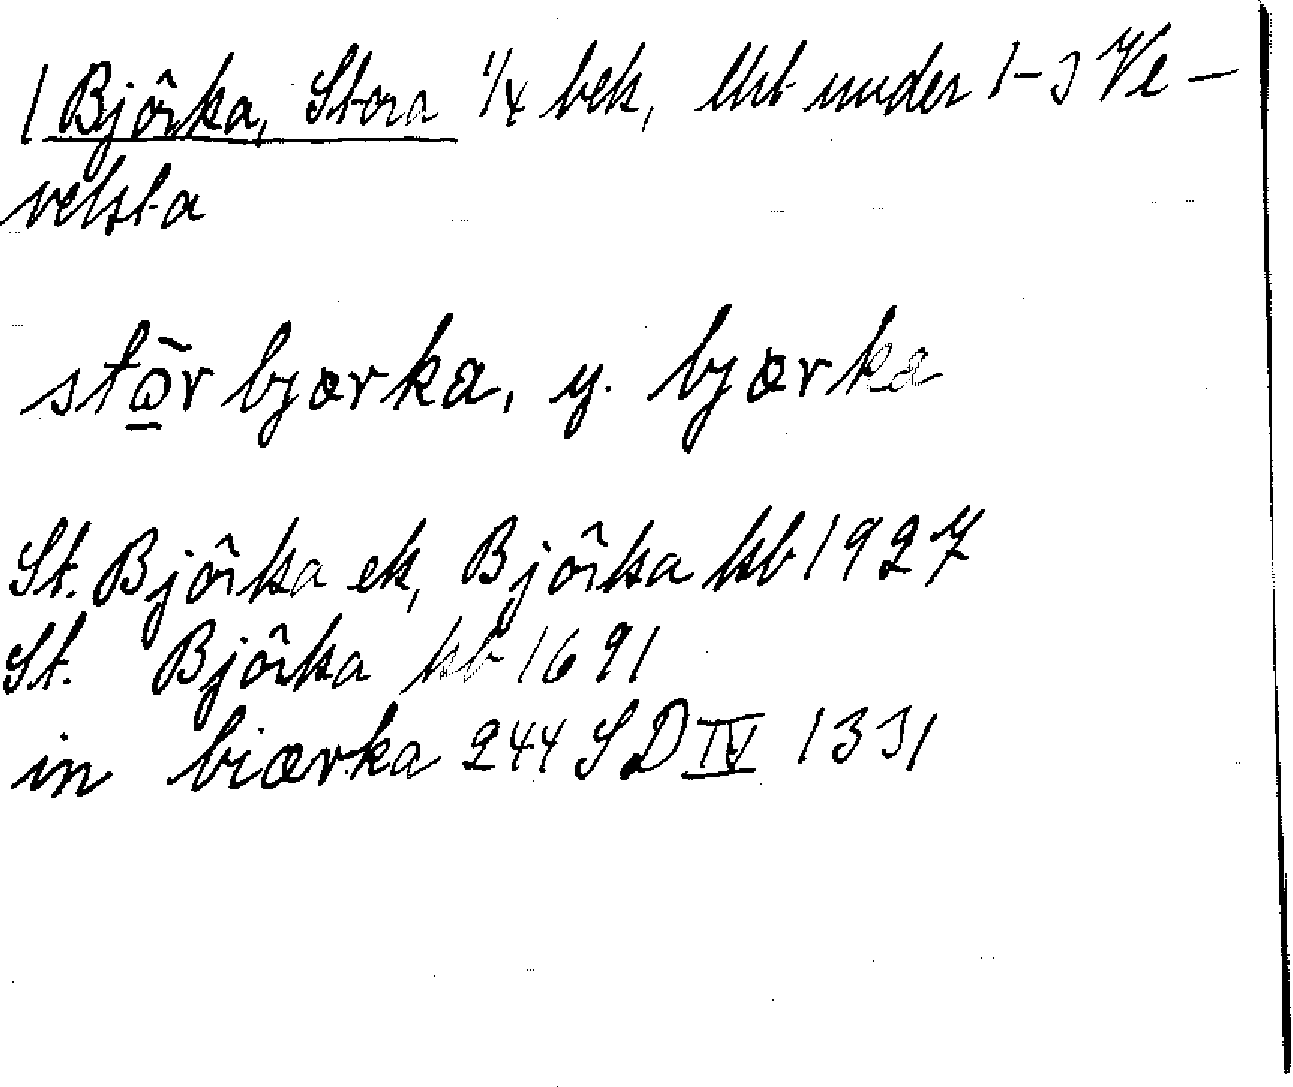 1 Björka, Stora 1/4 bek, Uht under 1-3 Ve-
velsta
stōr bjærka, y. bjærka
St. Björka ek, Björka kb 1927
St. Björka kb 1691
in biærka 244 SD IV 1331